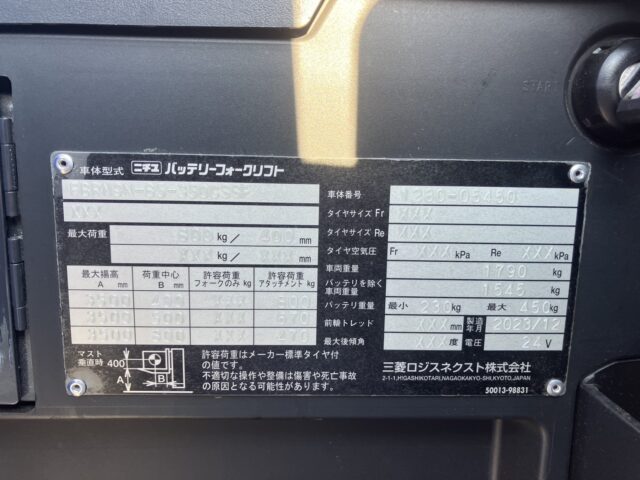 START
車体型式 ニチユ バッテリーフォークリフト
XX
最大荷重 kg/ 400 mm
XXX kg/ XXX mm
最大揚高 A mm 荷重中心 B mm 許容荷重 フォークのみ kg 許容荷重 アタッチメント kg
3500 400 XXX 600
3500 500 XXX
3500 600 XXX
マスト垂直時 400 A B
許容荷重はメーカー標準タイヤ付
の値です。
不適切な操作や整備は傷害や死亡事故
の原因となる可能性があります。
車体番号
タイヤサイズ Fr XXX
タイヤサイズ Re XXX
タイヤ空気圧 Fr XXX kPa Re XXX kPa
車両重量 1790 kg
バッテリを除く車両重量 1545 kg
バッテリ重量 最小 230 kg 最大 450 kg
前輪トレッド XXX mm 製造年月 2023/12
最大後傾角 XXX 度 電圧 24 V
三菱ロジスネクスト株式会社
2-1-1,HIGASHIKOTARI,NAGAOKAKYO-SHI,KYOTO,JAPAN
50013-98831